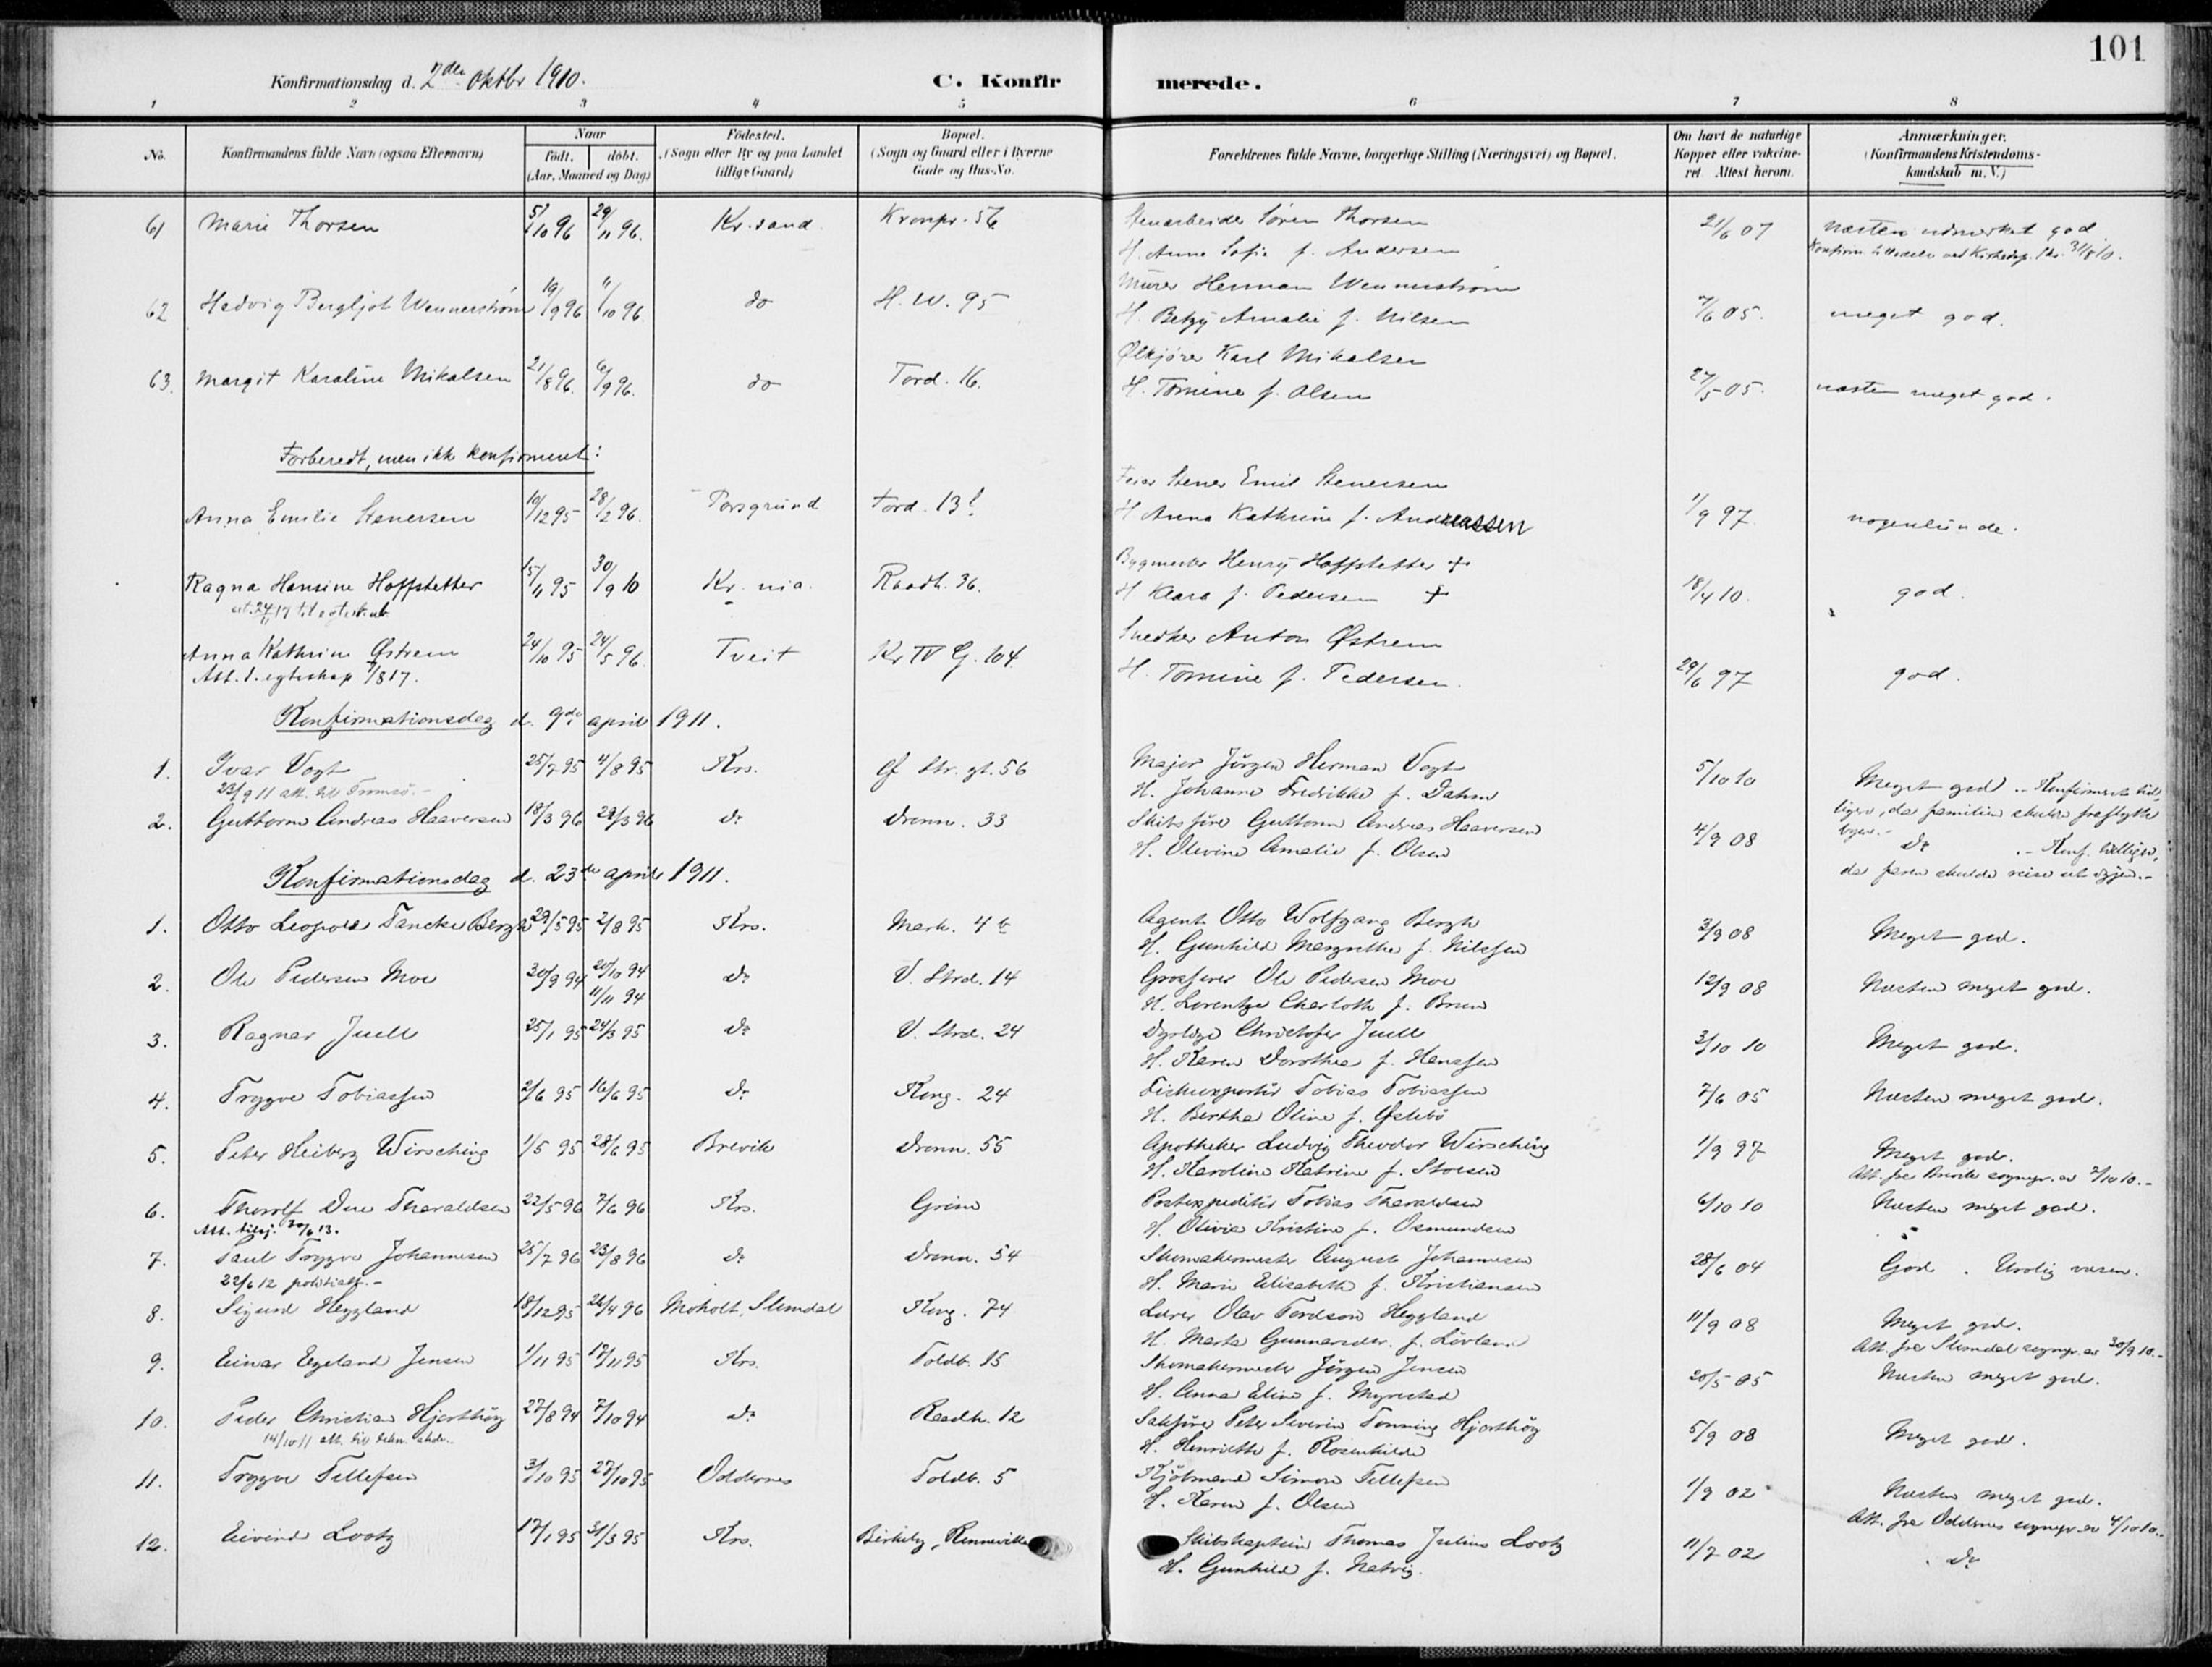 101
Konfirmationsdag d. 2den Oktbr 1910.
C. Konfirmerede.
1 2 3 4 5 6 7 8
No. Konfirmandens fulde Navn (ogsaa Efternavn) Naar født. døbt. (Aar, Maaned og Dag) Fødested. (Sogn eller By og paa Landet tillige Gaard) Bopæl. (Sogn og Gaard eller i Byerne Gade og Hus-No. Forældrenes fulde Navne, borgerlige Stilling (Næringsvei) og Bopæl. Om havt de naturlige Kopper eller vakcineret. Attest herom. Anmærkninger. (Konfirmandens Kristendomskundskab m. V.)
61 Marie Thorsen 5/10 96 29/11 96. Kr.sand Kronpr. 56 Stenarbeider Søren Thorsen 21/6 07 næsten udmerket god
H. Anna Sofie f. Andersen 31/8 10.
62 Hedvig Bergljot Wennerstrøm 19/9 96 11/10 96 do H. W. 95 Murer Herman Wennerstrøm 7/6 05. meget god.
H. Betzy Amalie f. Nilsen
63. Margit Karoline Mikalsen 21/8 96. 6/9 96. do Tord. 16. Ølkjører Karl Mikalsen 27/5 05. næsten meget god.
H. Tomine f. Olsen
Forberedt, men ikke konfirmeret:
Anna Emilie Stenersen 10/12 95 28/2 96. Porsgrund Tord. 13 Feier Stener Emil Stenersen 1/9 97 nogenlunde.
H Anna Kathrine f. Andreassen
Ragna Hansine Hoffstetter 15/11 95 30/9 10 Kr. nia. Raadh. 36. Bygmester Henry Hoffstetter + 18/4 10. god.
H Klara f. Pedersen +
Anna Kathrine Østrem 24/10 95 24/5 96. Tveit Kr IV G. 104 Snedker Anton Østrem 29/6 97 god.
Att. t. egteskap 7/8 17. H. Tomine f. Pedersen.
Konfirmationsdag d. 9de april 1911.
1. Ivar Vogt 25/7 95 4/8 95 Krs. Gf Str. gt. 56 Major Jörgen Herman Vogt 5/10 10 Meget god. - Konfirmeret tid-
23/9 11 att. til Tromsö. - H. Johanne Fredrikke f. Dahm ligere, da familien skulde fraflytte
2. Guttorm Andreas Haaversen 18/3 96 29/3 96 do Dronn. 33 Skibsfører Guttorm Andreas Haaversen 4/9 08 byen. - do. - Konf. tidligere,
H. Olevine Amalie f. Olsen da faren skulde reise ut igjen. -
Konfirmationsdag d. 23de april 1911.
1. Otto Leopold Tancke Bergh 29/5 95 2/8 95 Krs. Mark. 4 b Agent Otto Wolfgang Bergh 3/9 08 Meget god.
H. Gunhild Margrethe f. Nilssen
2. Ole Pedersen Moe 30/9 94 20/10 94 do V. Strd. 14 Grosserer Ole Pedersen Moe 12/9 08 Næsten meget god.
11/11 94 H. Lorentze Charlotte f. Bruun
3. Ragnar Juell 25/1 95 24/3 95 do V. Strd. 24 Dyrlæge Christofer Juell 3/10 10 Meget god.
H. Karen Dorothea f. Hanssen
4. Trygve Tobiassen 2/6 95 16/6 95 do Kong. 24 Fiskeexportør Tobias Tobiassen 7/6 05 Næsten meget god.
H. Berthe Oline f. Østebö
5. Peter Heiberg Wirsching 1/5 95 28/6 95 Brevik Dronn. 55 Apotheker Ludvig Theodor Wirsching 1/9 97 Meget god.
H. Karoline Katrine f. Stoesen Att. fra Brevik sognepr. av 7/10 10. -
6. Thorolf Due Tharaldsen 22/5 96 7/6 96 Krs. Grim Postexpeditör Tobias Tharaldsen 6/10 10 Næsten meget god.
Att. tilsj. 30/6 13. H. Olivia Kristine f. Osmundsen
7. Paul Trygve Johannesen 25/7 96 23/8 96 do Dronn. 54 Skomakermester August Johannesen 28/6 04 God. Urolig væsen.
22/6 12 politiatt. - H. Marie Elisabeth f. Kristiansen
8. Sigurd Heggland 18/12 95 26/4 96 Moholt, Slemdal Kong. 74 Lærer Olav Tordson Heggland 11/9 08 Meget god.
H. Marta Gunnarsdtr. f. Lövland Att. fra Slemdal sognepr. av 30/9 10. -
9. Einar Egeland Jensen 1/11 95 17/11 95 Krs. Toldb. 15 Skomakermester Jörgen Jensen 20/5 05 Næsten meget god.
H. Anna Eline f. Myrestad
10. Peder Christian Hjorthöy 27/8 94 7/10 94 do Raadh. 12 Sakförer Peter Severin Tonning Hjorthöy 5/9 08 Meget god.
14/10 11 att. til tekn. skole. H. Henriette f. Rosenkilde
11. Trygve Tellefsen 3/10 95 27/10 95 Oddernes Toldb. 5 Kjöbmand Simon Tellefsen 1/9 02 Næsten meget god.
H. Karen f. Olsen Att. fra Oddernes sognepr. av 4/10 10. -
12. Eivind Lootz 17/1 95 31/3 95 Krs. Skibskaptein Thomas Julius Lootz 11/7 02 do
H. Gunhild f. Natvig.